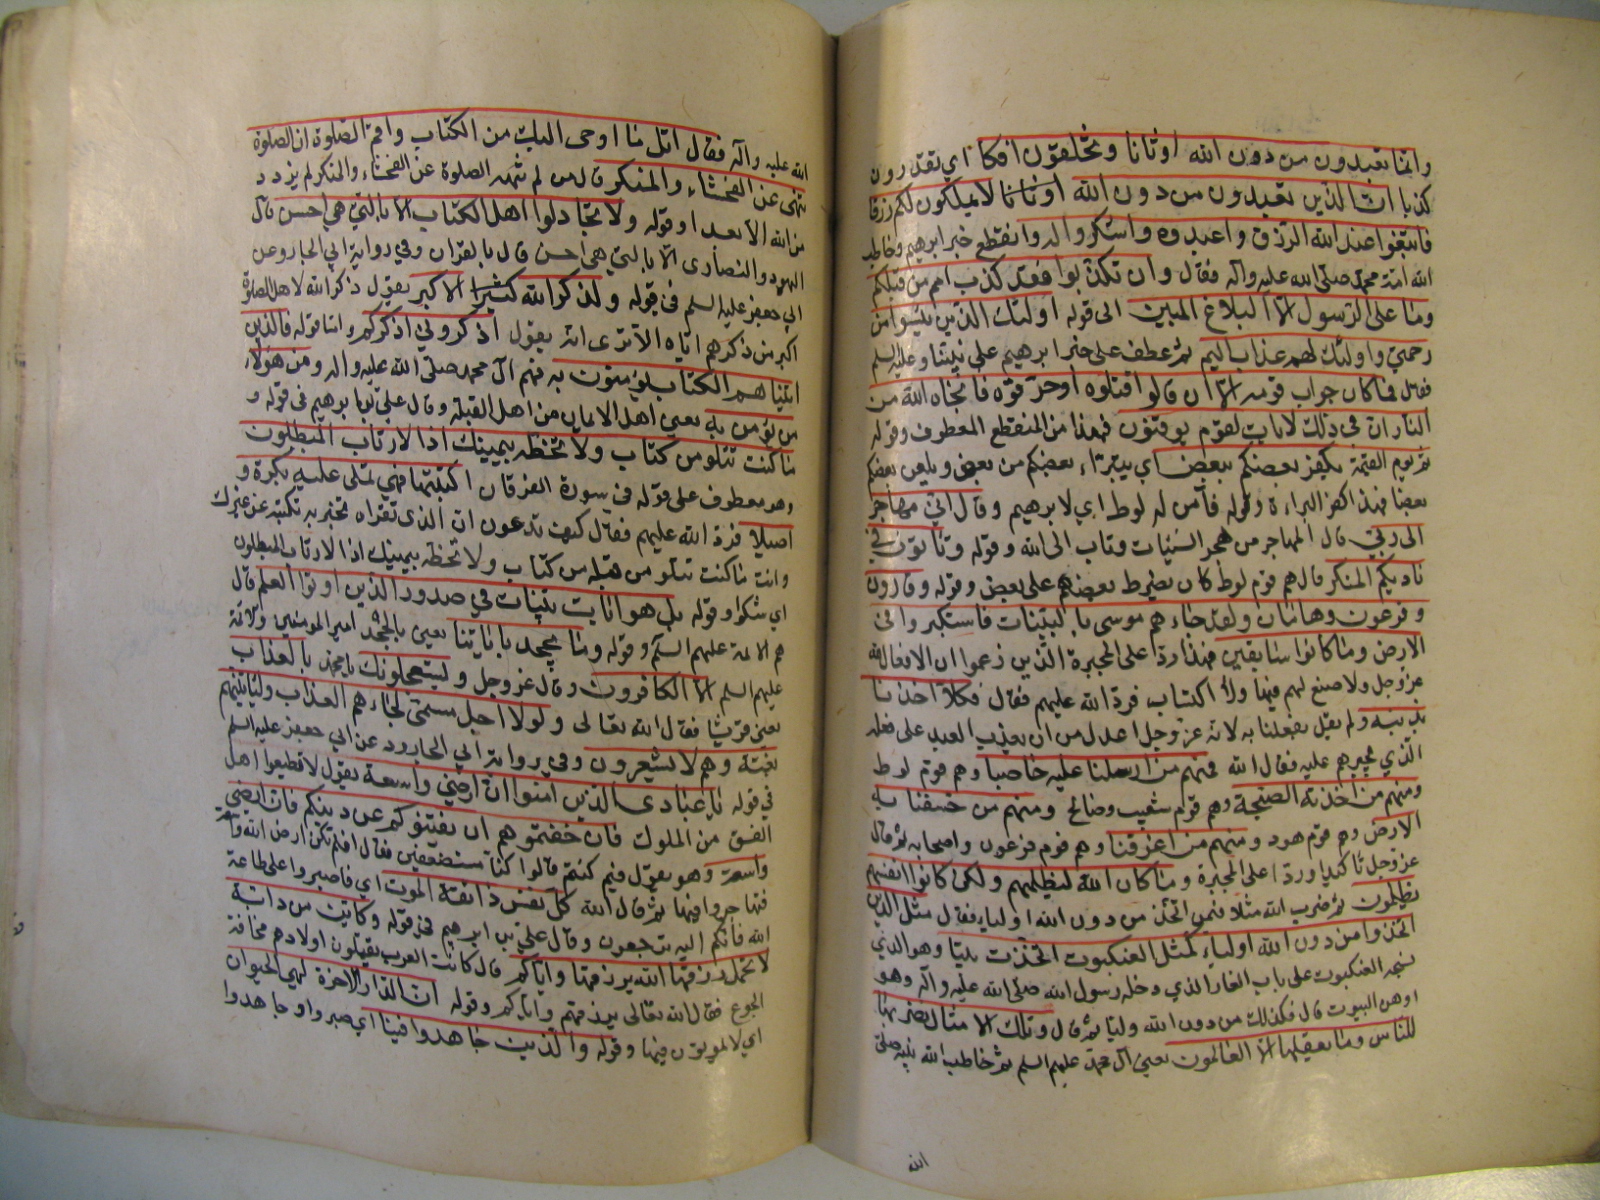 وانما تعبدون من دون الله اوثانا وتخلقون افكا اي تقدرون
كذبا ان الذين تعبدون من دون الله اوثانا لا يملكون لكم رزقا
فابتغوا عند الله الرزق واعبدوه واشكروا له وانقطع خبر ابرهيم وخاطب
الله امة محمد صلى الله عليه وآله فقال وان تكذبوا فقد كذب امم من قبلكم
وما على الرسول الا البلاغ المبين الى قوله اولئك الذين يئسوا من
رحمتي واولئك لهم عذاب اليم ثم عطف على خبر ابرهيم على نبينا وعليه السلم
فقال فما كان جواب قومه الا ان قالوا اقتلوه او حرقوه فانجاه الله من
النار ان في ذلك لايات لقوم يوقنون فهذا من المنقطع المعطوف وقوله
ثم يوم القيمة يكفر بعضكم ببعض اي يتبرأ بعضكم من بعض ويلعن بعضكم
بعضا فهذا كفر البراءة وقوله فآمن له لوط اي لابرهيم وقال اني مهاجر
الى ربي قال المهاجر من هجر السيئات وتاب الى الله وقوله وتاتون في
ناديكم المنكر قال هم قوم لوط كان يضرط بعضهم على بعض وقوله وقارون
وفرعون وهامان ولقد جاءهم موسى بالبينات فاستكبروا في
الارض وما كانوا سابقين فهذا ردا على المجبرة الذين زعموا ان الافعال لله
عز وجل ولا صنع لهم فيها ولا اكتساب فرد الله عليهم فقال فكلا اخذنا
بذنبه ولم يقل بفعلنا به لانه عز وجل اعدل من ان يعذب العبد على فعله
الذي يجبرهم عليه فقال الله فمنهم من ارسلنا عليه حاصبا وهم قوم لوط
ومنهم من اخذته الصيحة وهم قوم شعيب وصالح ومنهم من خسفنا به
الارض وهم قوم هود ومنهم من اغرقنا وهم قوم فرعون واصحابه ثم قال
عز وجل تاكيدا وردا على المجبرة وما كان الله ليظلمهم ولكن كانوا انفسهم
يظلمون ثم ضرب الله مثلا فيمن اتخذ من دون الله اولياء فقال مثل الذين
اتخذوا من دون الله اولياء كمثل العنكبوت اتخذت بيتا وهو الذي
نسجه العنكبوت على باب الغار الذي دخله رسول الله صلى الله عليه وآله وهو
اوهن البيوت قال فكذلك من دون الله وليا ثم قال وتلك الامثال نضربها
للناس وما يعقلها الا العالمون يعني آل محمد عليهم السلم ثم خاطب الله نبيه صلى
الله
الله عليه وآله فقال اتل ما اوحى اليك من الكتاب واقم الصلوة ان الصلوة
تنهى عن الفحشاء والمنكر قال من لم تنهه الصلوة عن الفحشاء والمنكر لم يزدد
من الله الا بعدا وقوله ولا تجادلوا اهل الكتاب الا بالتي هي احسن قال
اليهود والنصارى الا بالتي هي احسن قال بالقران وفي رواية ابي الجارود عن
ابي جعفر عليه السلم في قوله ولذكر الله اكبر يقول ذكر الله لاهل الصلوة
اكبر من ذكرهم اياه الا ترى انه يقول اذكروني اذكركم واما قوله فالذين
اتيناهم الكتاب يؤمنون به فهم آل محمد صلى الله عليه وآله ومن هؤلاء
من يؤمن به يعني اهل الايمان من اهل القبلة وقال علي بن ابرهيم في قوله و
ما كنت تتلو من كتاب ولا تخطه بيمينك اذا لارتاب المبطلون
وهو معطوف على قوله في سورة الفرقان اكتتبها فهي تملى عليه بكرة و
اصيلا فرد الله عليهم فقال كيف تدعون ان الذي تقراه تخبر به تكتبه عن غيرك
وانت ما كنت تتلو من قبله من كتاب ولا تخطه بيمينك اذا لارتاب المبطلون
اي شكوا وقوله بل هو ايات بينات في صدور الذين اوتوا العلم قال
هم الائمة عليهم السلم وقوله وما يجحد باياتنا يعني ما يجحد امير المؤمنين والائمة
عليهم السلم الا الكافرون وقال عز وجل ويستعجلونك يا محمد بالعذاب
يعني قريشا فقال الله تعالى ولولا اجل مسمى لجاءهم العذاب وليأتينهم
بغتة وهم لا يشعرون وفي رواية ابي الجارود عن ابي جعفر عليه السلم
في قوله يا عبادي الذين امنوا ان ارضي واسعة يقول لا تطيعوا اهل
الفسق من الملوك فان خفتموهم ان يفتنوكم عن دينكم فان ارضي
واسعة وهو يقول فيم كنتم قالوا كنا مستضعفين فقال الم تكن ارض الله واسعة
فتهاجروا فيها ثم قال الله كل نفس ذائقة الموت اي فاصبروا على طاعة
الله فانكم اليه ترجعون وقال علي بن ابرهيم في قوله وكاين من دابة
لا تحمل رزقها الله يرزقها واياكم قال كانت العرب يقتلون اولادهم مخافة
الجوع فقال الله تعالى يرزقهم واياكم وقوله ان الدار الآخرة لهي الحيوان
اي لا يموتون فيها وقوله والذين جاهدوا فينا اي صبروا وجاهدوا